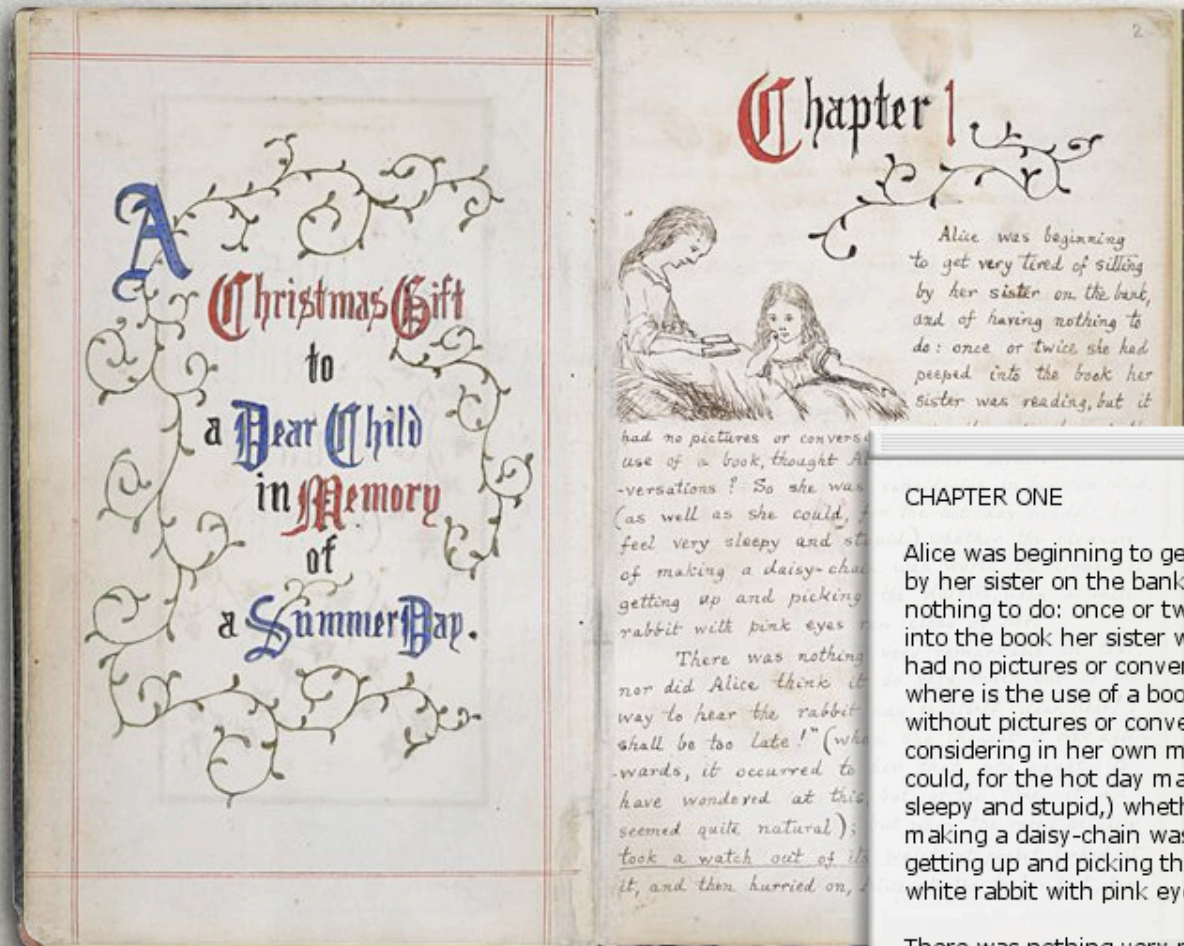 A
Christmas Gift
to
a Dear Child
in Memory
of
a Summer Day.
2
Chapter 1
Alice was beginning
to get very tired of sitting
by her sister on the bank,
and of having nothing to
do: once or twice she had
peeped into the book her
sister was reading, but it
had no pictures or convers
use of a book, thought Al
-versations? So she was
(as well as she could,
feel very sleepy and stu
of making a daisy-chai
getting up and picking
rabbit with pink eyes
There was nothing
nor did Alice think it
way to hear the rabbit
shall be too late!" (whe
-wards, it occurred to
have wondered at this,
seemed quite natural);
took a watch out of its
it, and then hurried on,
CHAPTER ONE
Alice was beginning to ge
by her sister on the bank
nothing to do: once or tw
into the book her sister w
had no pictures or conver
where is the use of a boo
without pictures or conve
considering in her own m
could, for the hot day ma
sleepy and stupid,) wheth
making a daisy-chain was
getting up and picking th
white rabbit with pink ey